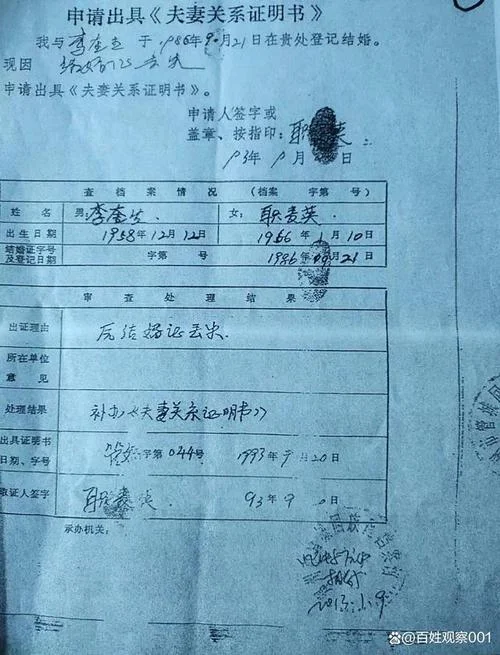 申请出具《夫妻关系证明书》
我与李奎 于1986年9月21日在贵处登记结婚。
现因 结婚证丢失
申请出具《夫妻关系证明书》。
申请人签字或
盖章、按指印：耿 英
93年9月 日
查 档 案 情 况 （档案 字第 号）
姓名 男：李奎 女：耿贵英
出生日期 1958年12月12日 1966年1月10日
结婚证字号及登记日期 字第 号 1986年09月21日
审 查 处 理 结 果
出证理由 结婚证丢失
所在单位意见
处理结果 补办《夫妻关系证明书》
出具证明书日期、字号 字第044号 1993年9月20日
取证人签字 英 93年9
承办机关：
百姓观察001